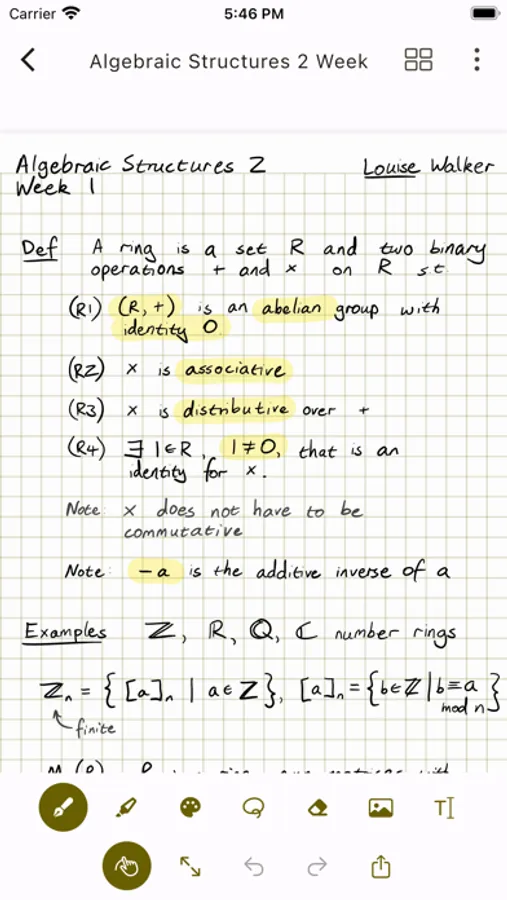 Carrier 5:46 PM
Algebraic Structures 2 Week
Algebraic Structures 2 Louise Walker
Week 1
Def A ring is a set R and two binary
operations + and × on R s.t.
(R1) (R, +) is an abelian group with
identity 0.
(R2) × is associative
(R3) × is distributive over +
(R4) ∃ 1∈R, 1≠0, that is an
identity for ×.
Note: × does not have to be
commutative
Note: -a is the additive inverse of a
Examples ℤ, ℝ, ℚ, ℂ number rings
ℤₙ = { [a]ₙ | a∈ℤ }, [a]ₙ = {b∈ℤ | b≡a
mod n}
finite
T